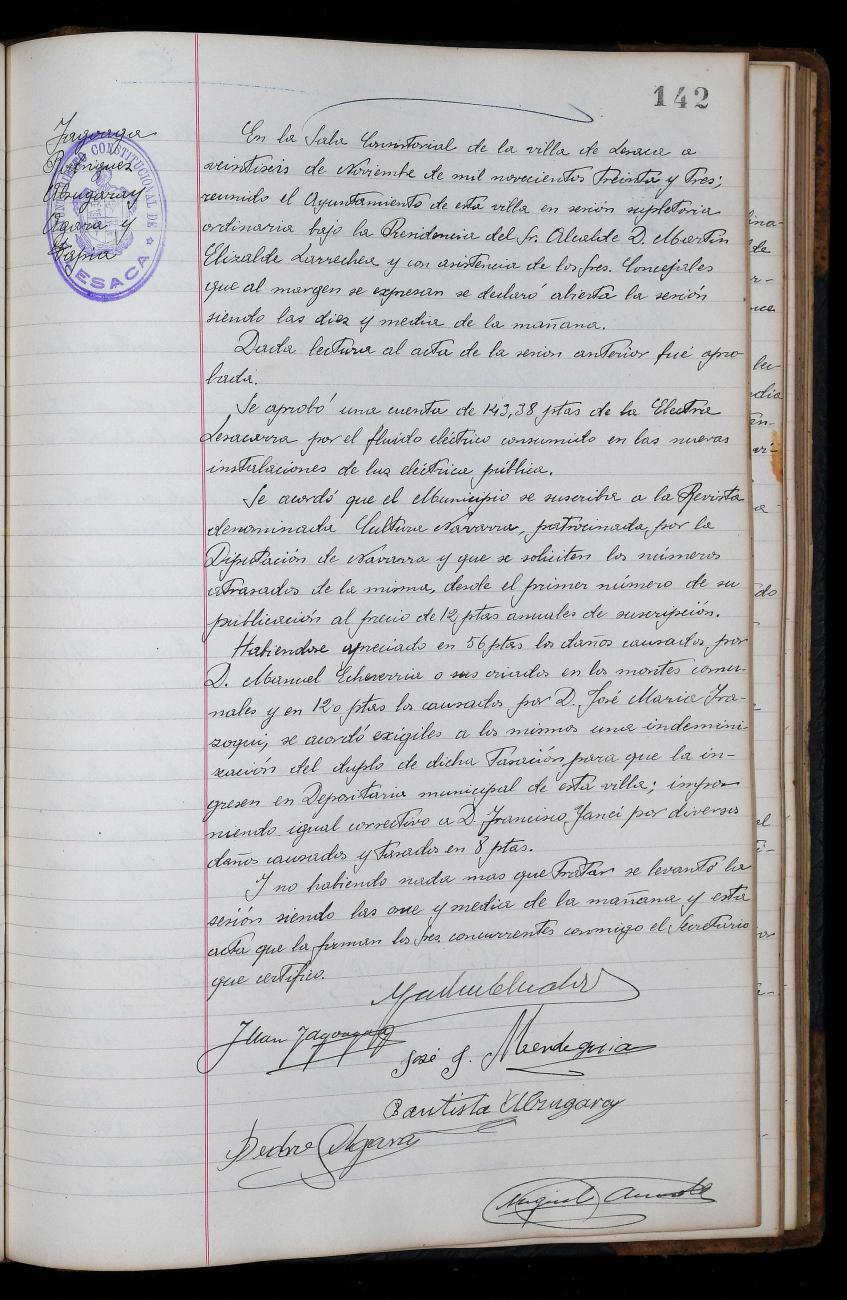 142
Jagoaga
Abrugaray
Ogara y
Tapia
AYUNTAMIENTO CONSTITUCIONAL DE
LESACA
En la Sala Consistorial de la villa de Lesaca a
veintiseis de Noviembre de mil novecientos treinta y tres;
reunido el Ayuntamiento de esta villa en sesión supletoria
ordinaria bajo la Presidencia del Sr. Alcalde D. Martin
Elizalde Larrechea y con asistencia de los Sres. Concejales
que al margen se expresan se declaró abierta la sesión
siendo las diez y media de la mañana.
Dada lectura al acta de la sesion anterior fué apro
bada.
Se aprobó una cuenta de 143,38 ptas de la Electra
Lesacarra por el fluido eléctrico consumido en las nuevas
instalaciones de luz eléctrica pública.
Se acordó que el Municipio se suscriba a la Revista
denominada Cultura Navarra, patrocinada por la
Diputación de Navarra y que se soliciten los números
atrasados de la misma, desde el primer número de su
publicación al precio de 12 ptas anuales de suscripción.
Habiendose apreciado en 56 ptas los daños causados por
D. Manuel Echeverria o sus criados en los montes comu-
nales y en 120 ptas los causados por D. José Maria Ira-
zoqui, se acordó exigiles a los mismos una indemini-
zación del duplo de dicha tasación para que la in-
gresen en Depositaria municipal de esta villa; impo-
niendo igual correctivo a D. Francisco Yanci por diversos
daños causados y tasados en 8 ptas.
Y no habiendo nada mas que tratar se levantó la
sesión siendo las once y media de la mañana y esta
acta que la firman los Sres. concurrentes conmigo el Secretario
que certifico.
Martin Elizalde
Juan Jagoaga
José J. Mendeguia
Bautista Abrugaray
Pedro Ogara
Miguel